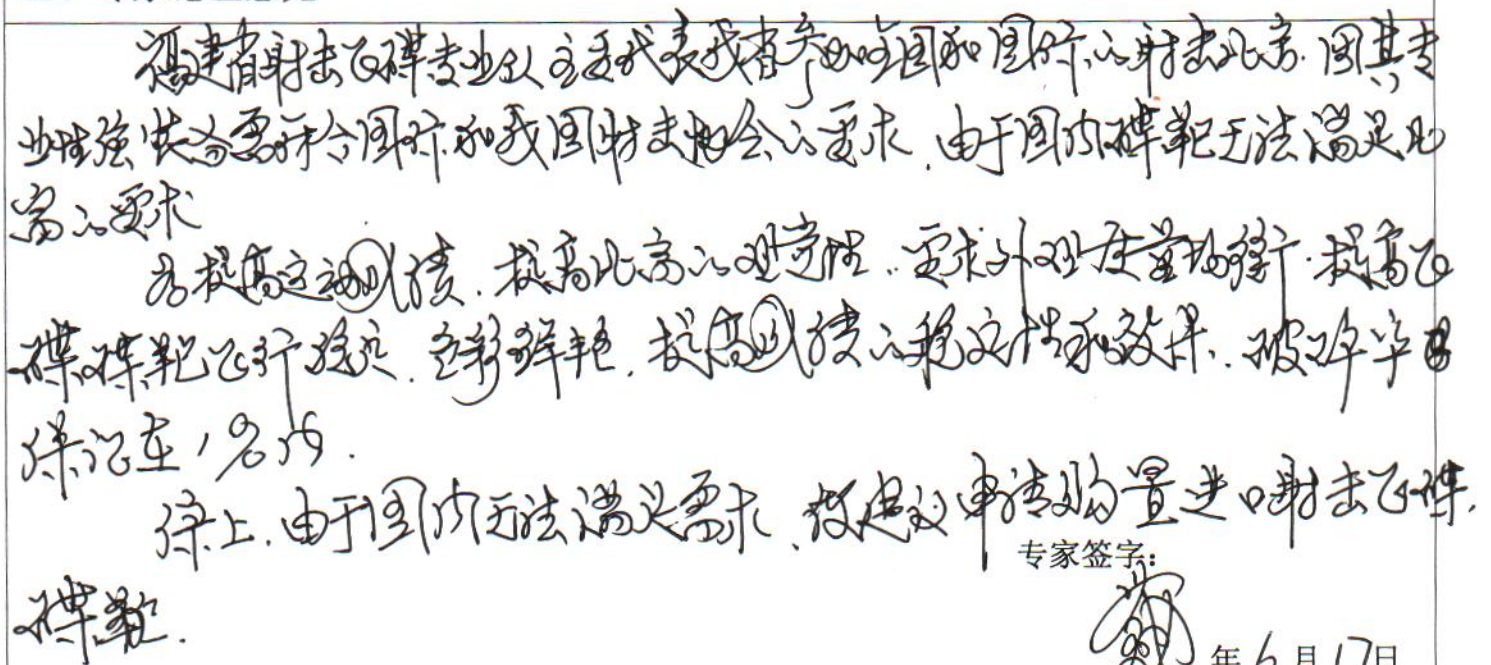 福建省射击飞碟专业队主要代表我省参加全国和国际的射击比赛.因其专
业性强装备需符合国际和我国射击协会的要求.由于国内碟靶无法满足比
赛的要求
为提高运动成绩.提高比赛的观赏性.要求外观质量均衡.提高飞
碟碟靶飞行稳定.色彩鲜艳.提高成绩的稳定性和效果.破碎率
保证在1%内.
综上.由于国内无法满足需求、故建议申请购置进口射击飞碟.
碟靶.
专家签字:
年6月17日